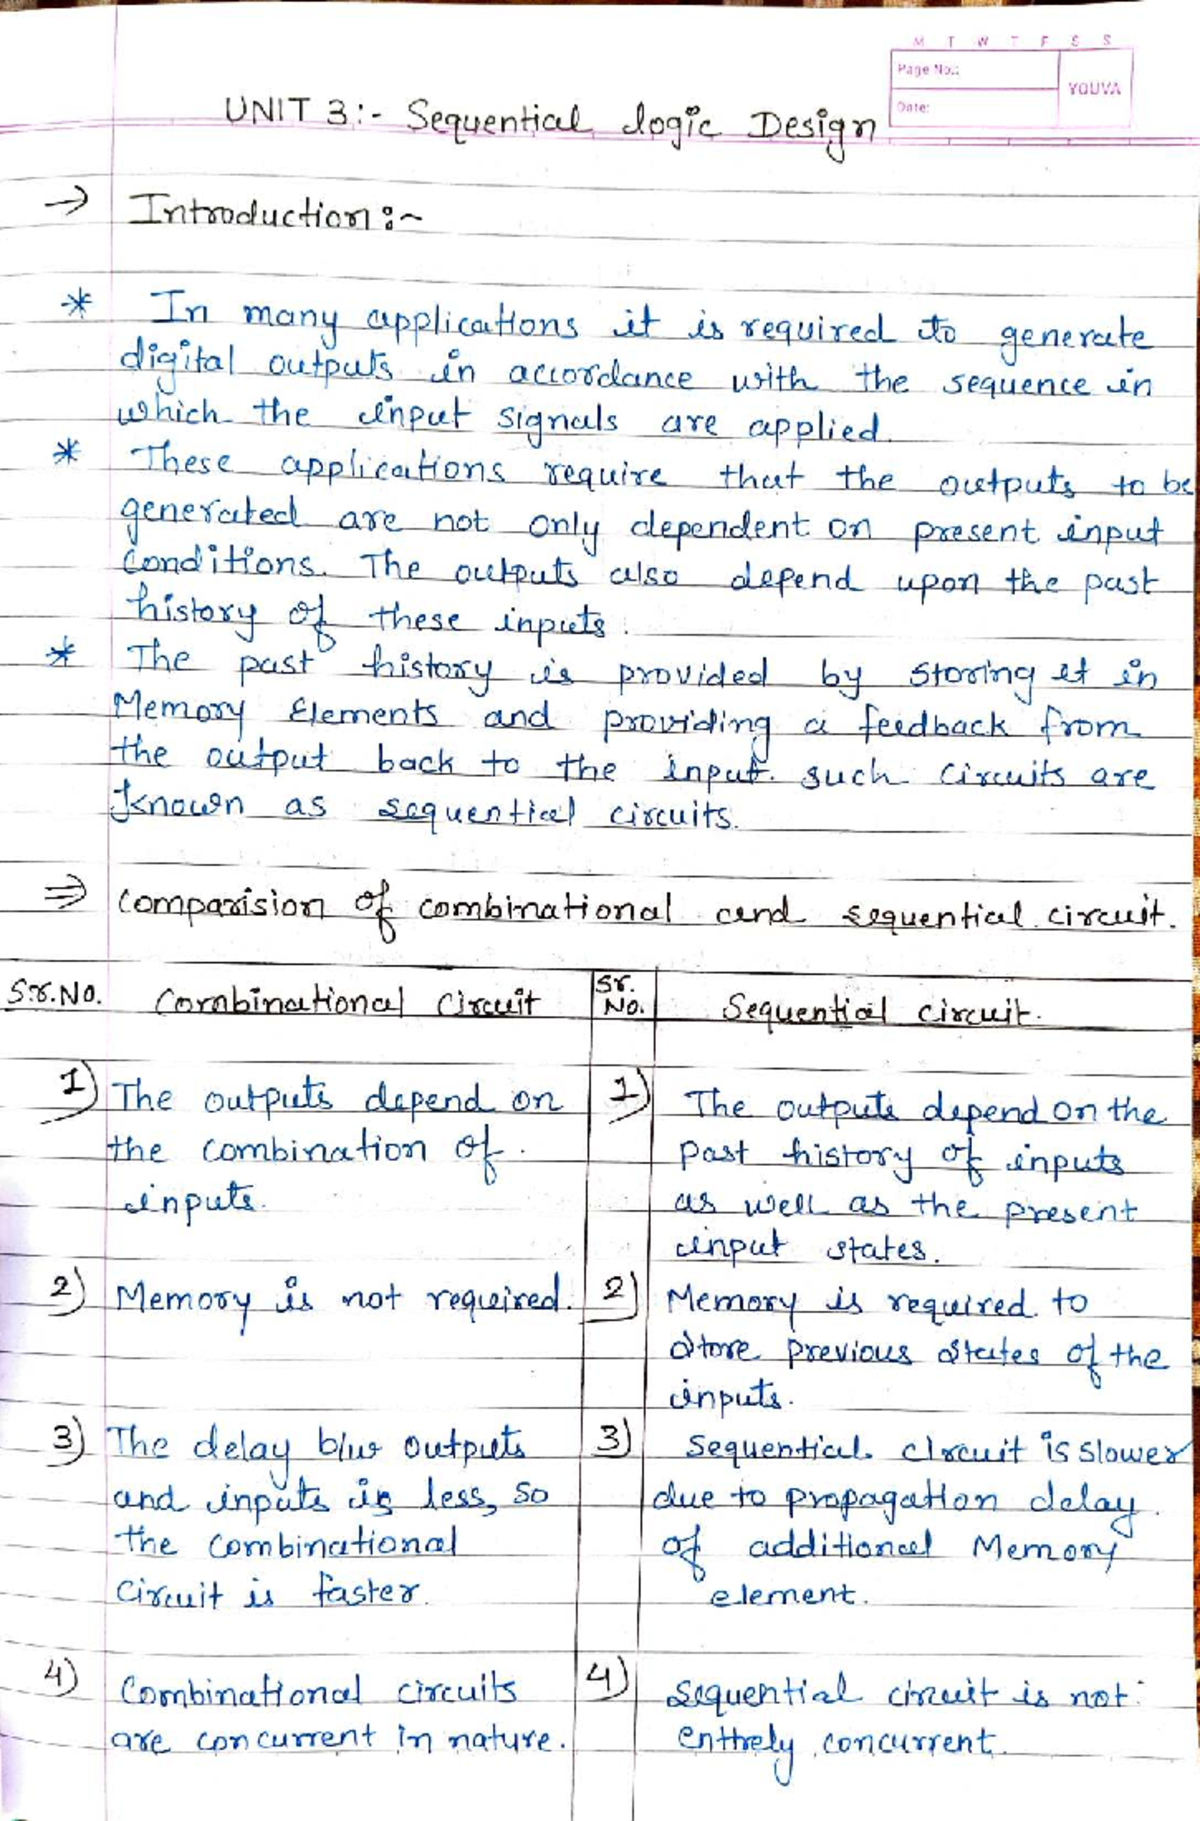 M T W T F S S
Page No.:
YOUVA
Date:
UNIT 3:- Sequential logic Design
→ Introduction:~
* In many applications it is required to generate
digital outputs in accordance with the sequence in
which the input signals are applied.
* These applications require that the outputs to be
generated are not only dependent on present input
conditions. The outputs also depend upon the past
history of these inputs.
* The past history is provided by storing it in
Memory Elements and providing a feedback from
the output back to the input. such circuits are
known as sequential circuits.
⇒ Comparision of combinational and sequential circuit.
Sr.No. Combinational Circuit
Sr. No. Sequential circuit.
1) The outputs depend on
the combination of
inputs.
1) The outputs depend on the
past history of inputs
as well as the present
input states.
2) Memory is not required.
2) Memory is required to
store previous states of the
inputs.
3) The delay b/w outputs
and inputs is less, so
the combinational
circuit is faster.
3) Sequential circuit is slower
due to propagation delay
of additional Memory
element.
4) Combinational circuits
are concurrent in nature.
4) Sequential circuit is not
entirely concurrent.